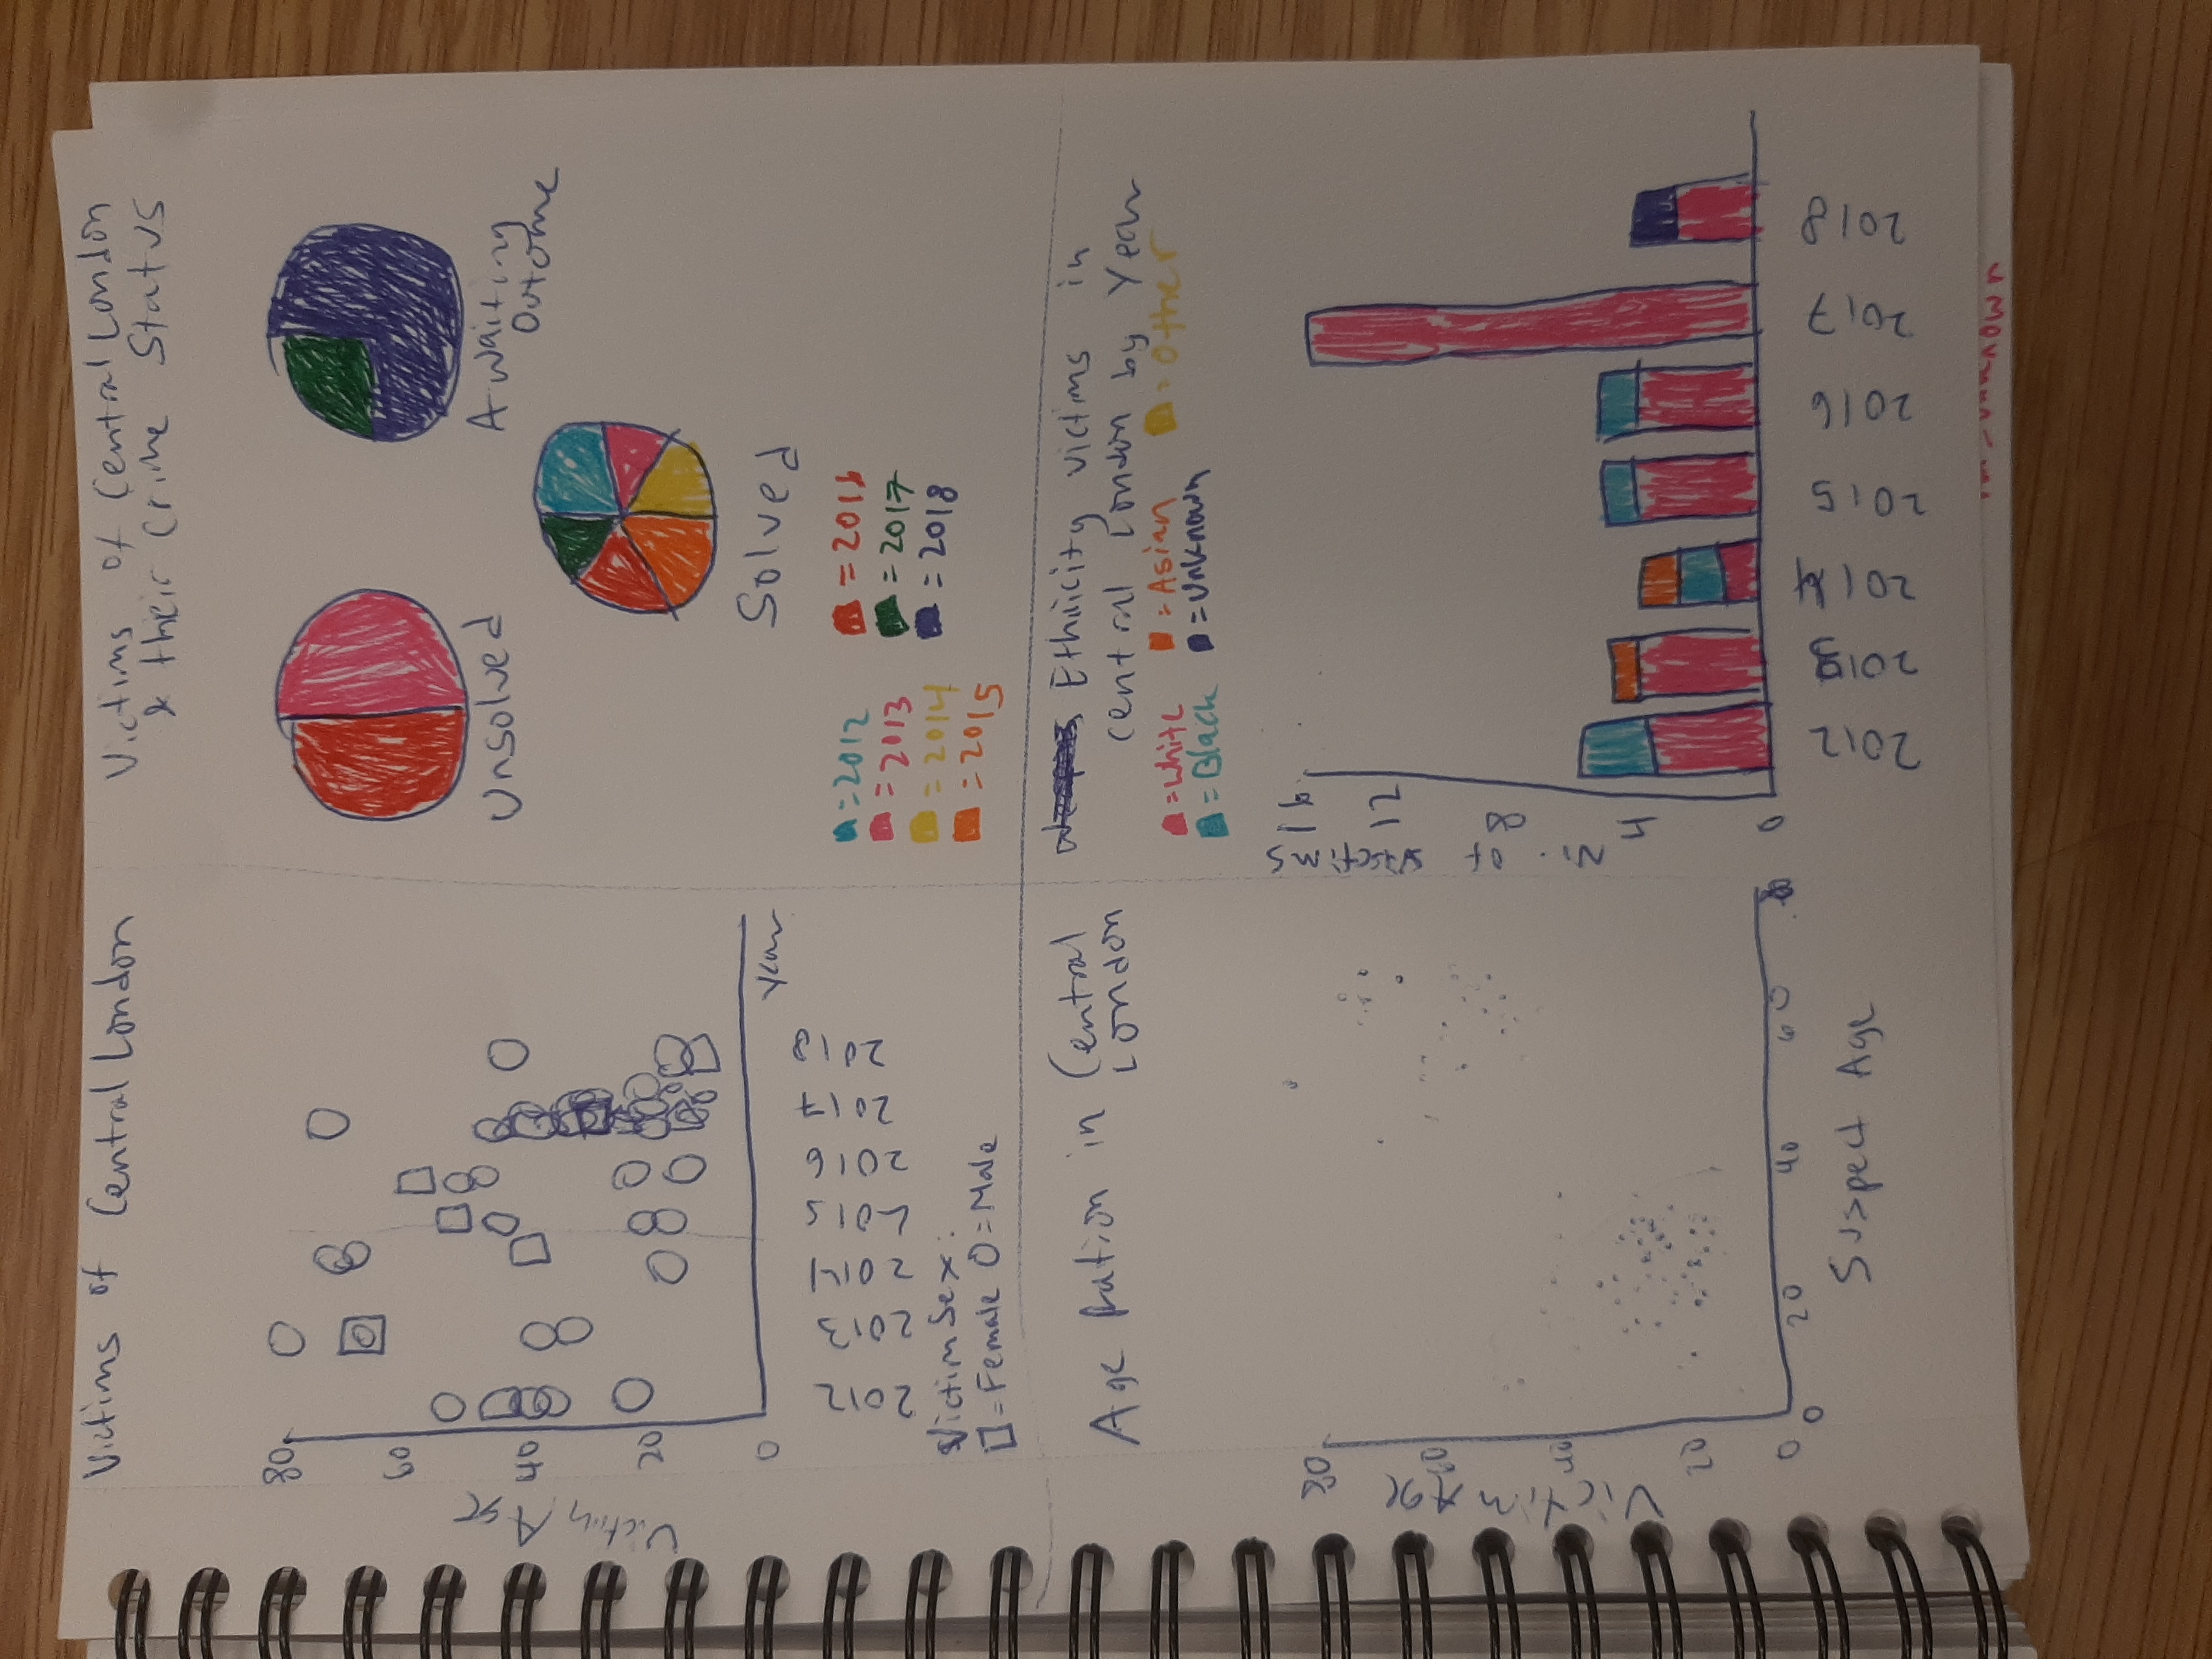 Victims of Central London
80
60
40
20
0
Victim Age
Year
2012
2013
2014
2015
2016
2017
2018
Victim Sex:
= Female O = Male
Victims of Central London
& their Crime Status
Unsolved
Awaiting
Outcome
Solved
= 2012
= 2013
= 2014
= 2015
= 2016
= 2017
= 2018
Age Ration in Central
London
80
60
40
20
0
Victim Age
0
20
40
60
Suspect Age
Ethnicity victims in
Central London by Year
= White
= Asian
= Other
= Black
= Unknown
No. of victims
16
12
8
4
0
2012
2013
2014
2015
2016
2017
2018
= unknown